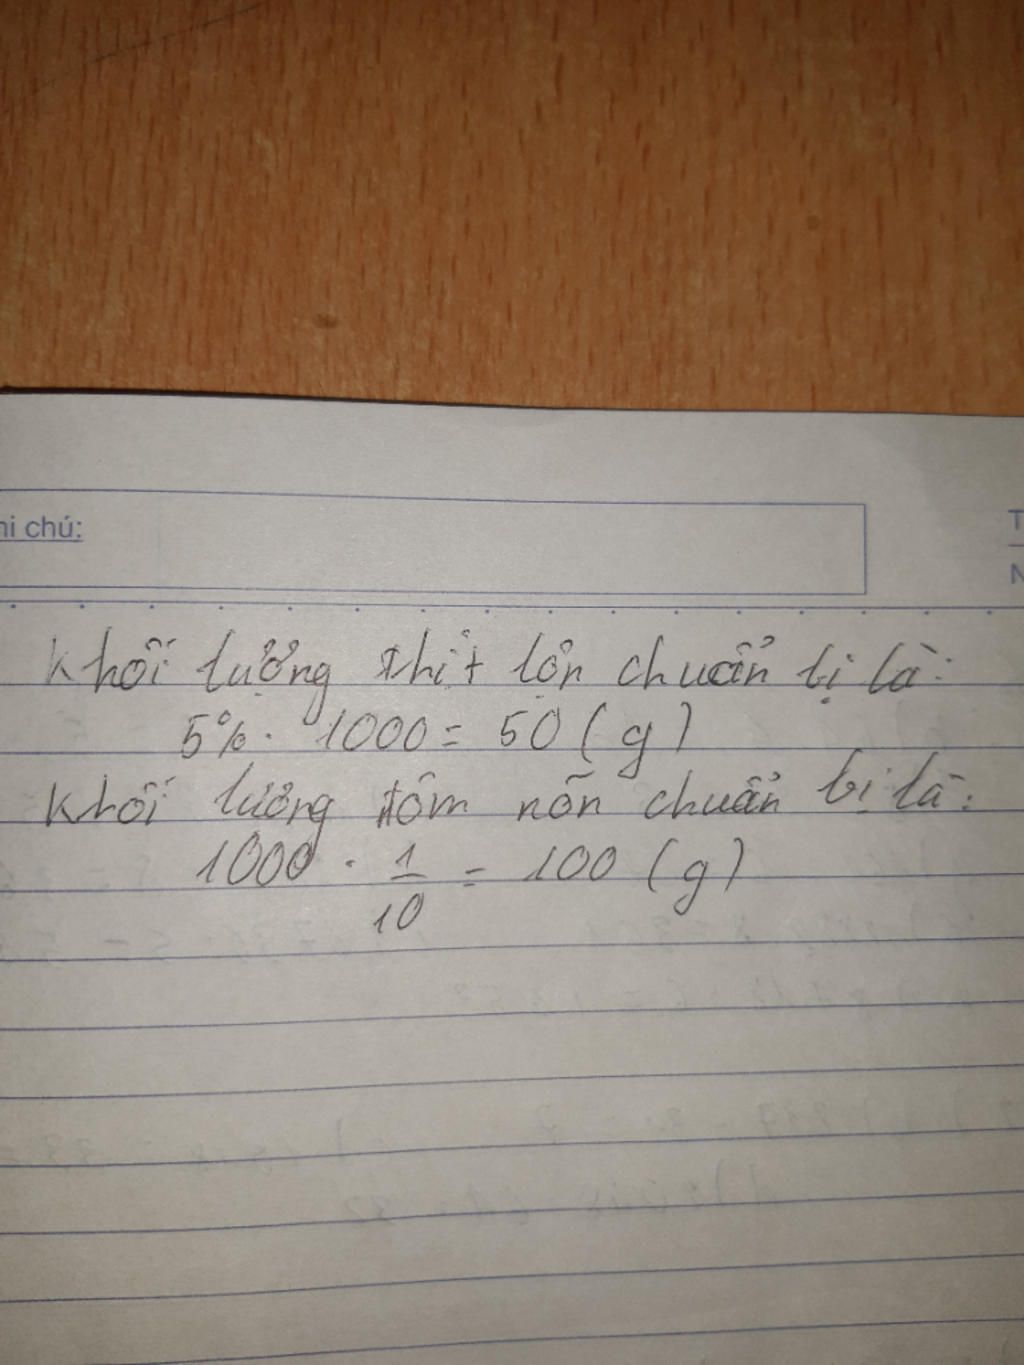 hi chú:
T
N
Khối lượng thịt lợn chuẩn bị là:
5% . 1000 = 50 (g)
Khối lượng tôm nõn chuẩn bị là:
1000 . 1/10 = 100 (g)